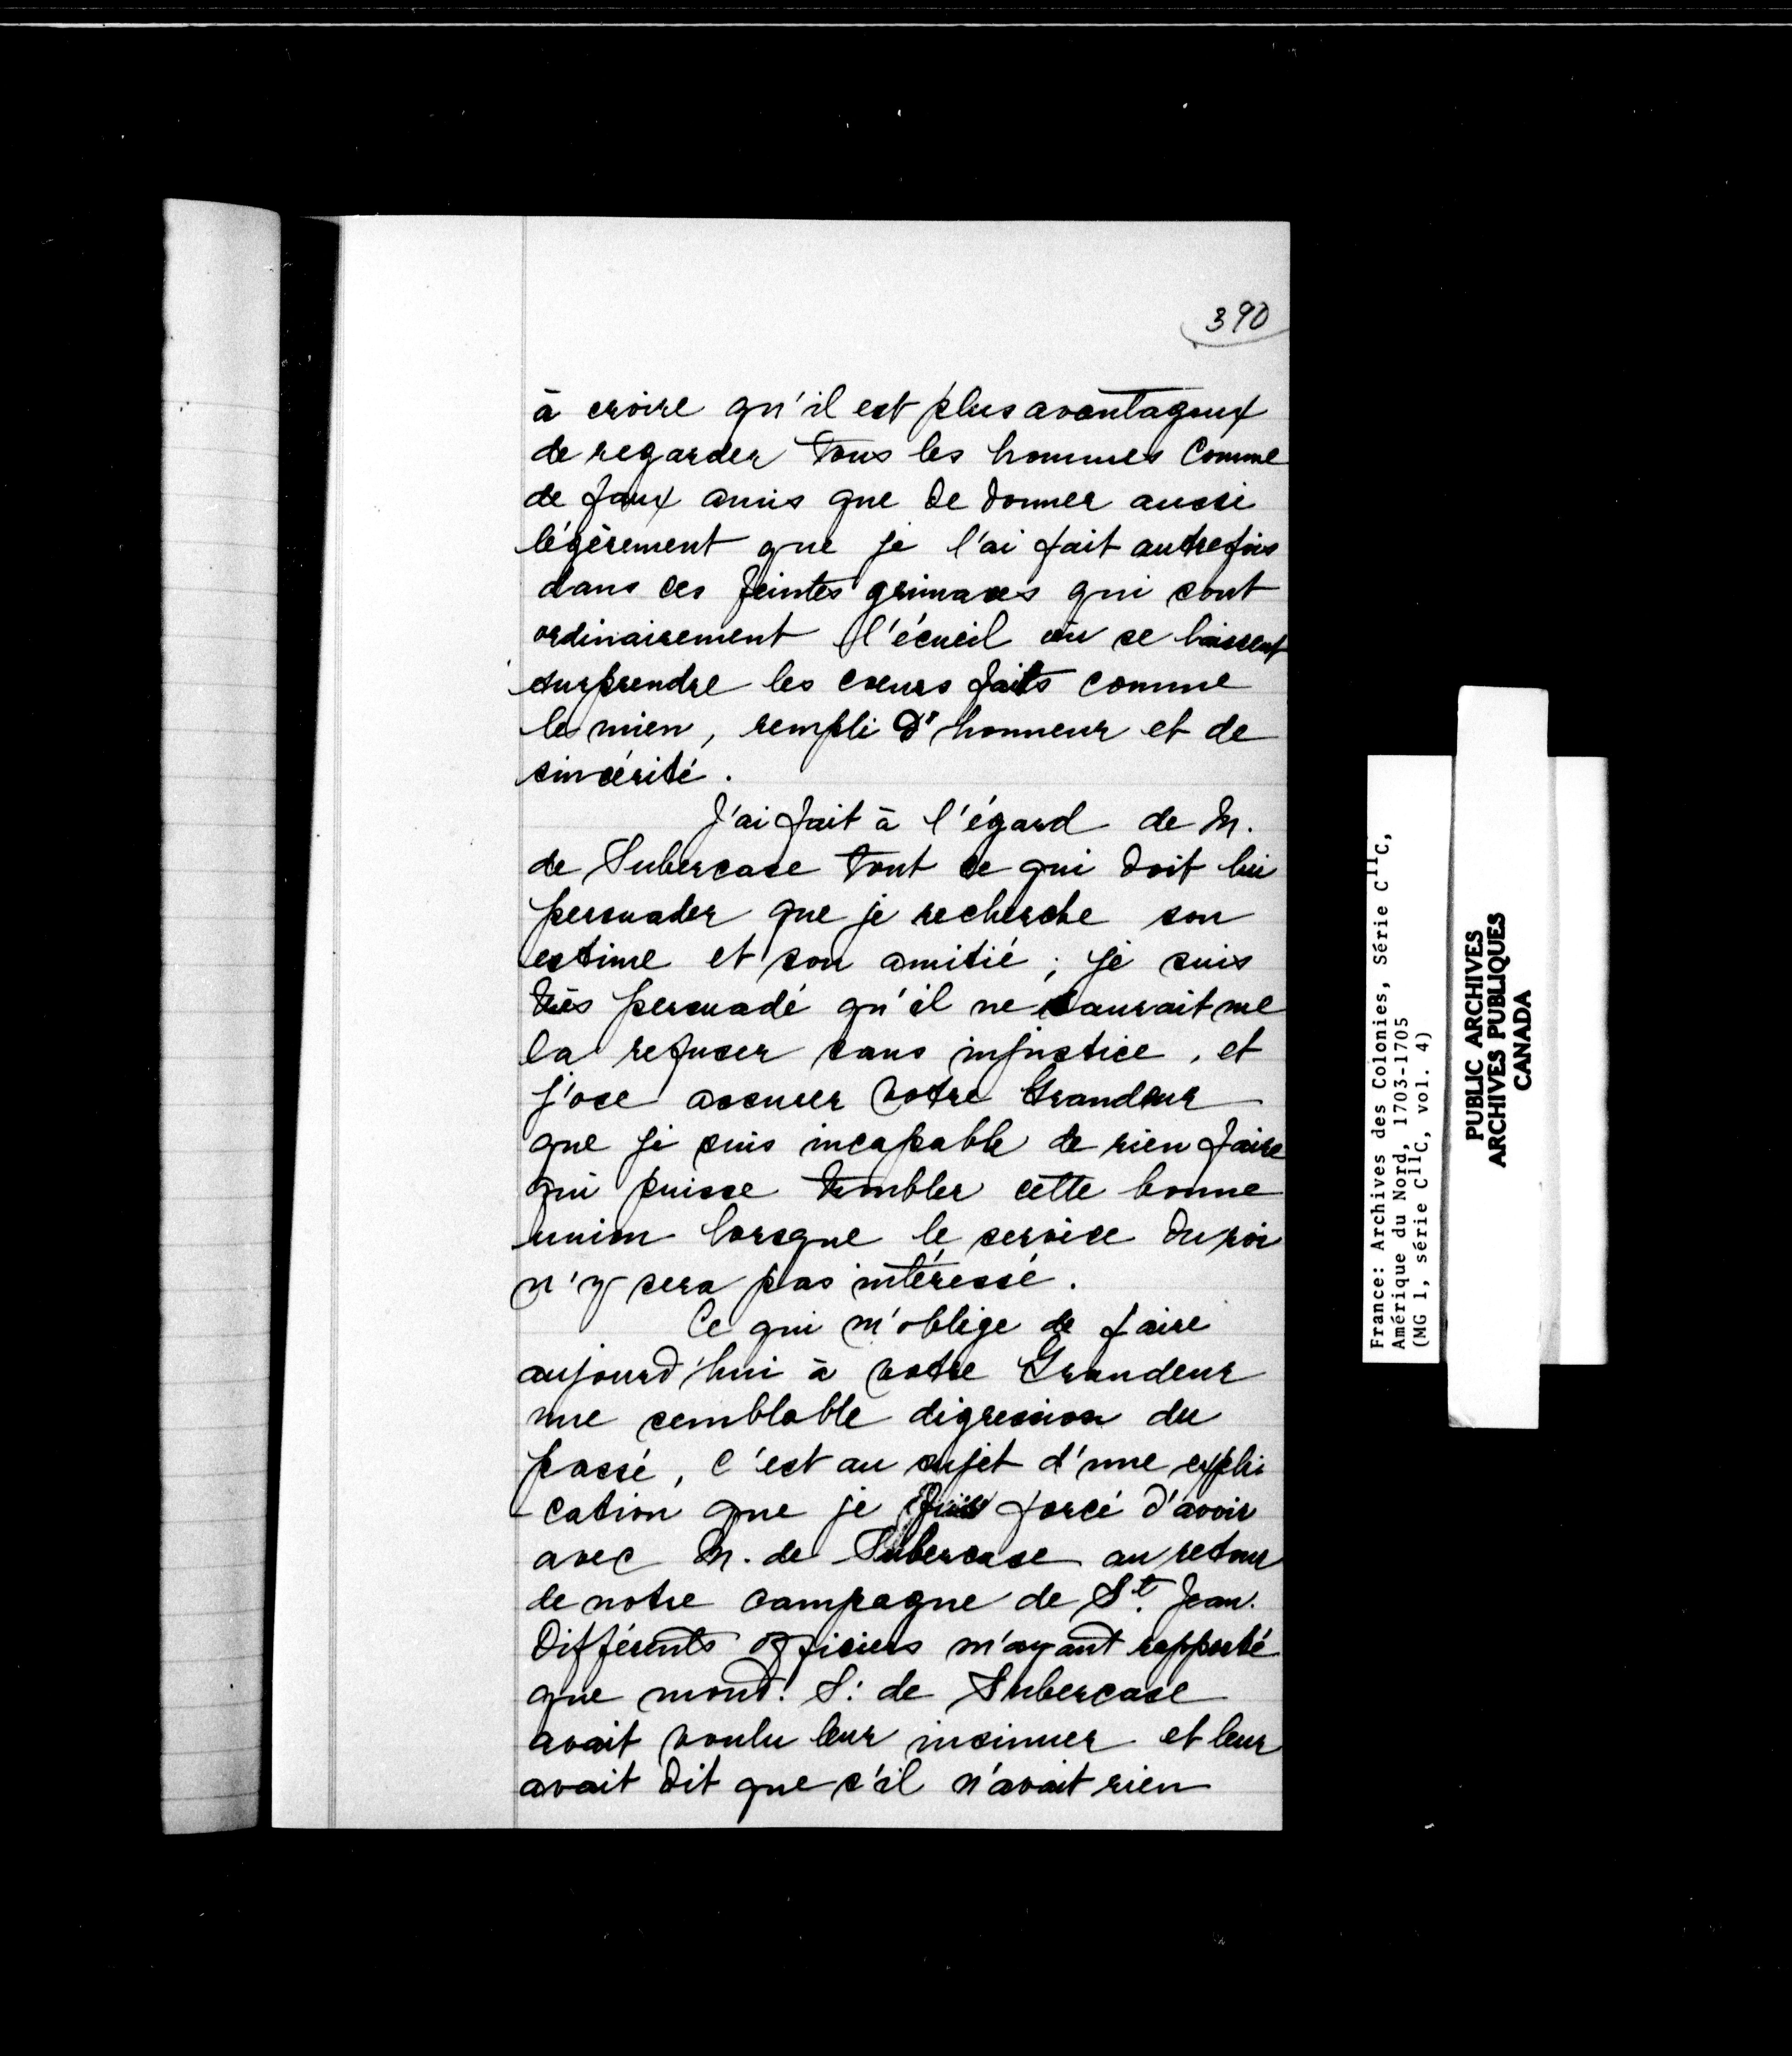 390
à croire qu'il est plus avantageux
de regarder tous les hommes comme
de faux amis que de donner aussi
légèrement que je l'ai fait autrefois
dans ces feintes grimaces qui sont
ordinairement l'écueil où se laissent
surprendre les cœurs faits comme
le mien, rempli d'honneur et de
sincérité.
J'ai fait à l'égard de M.
de Subercase tout ce qui doit lui
persuader que je recherche son
estime et son amitié ; je suis
très persuadé qu'il ne saurait me
la refuser sans injustice, et
j'ose assurer votre Grandeur
que je suis incapable de rien faire
qui puisse troubler cette bonne
union lorsque le service du roi
n'y sera pas intéressé.
Ce qui m'oblige de faire
aujourd'hui à votre Grandeur
une semblable digression du
passé, c'est au sujet d'une expli
-cation que je fus forcé d'avoir
avec M. de Subercase au retour
de notre campagne de St. Jean.
Différents officiers m'ayant rapporté
que mond. S. de Subercase
avait voulu leur insinuer et leur
avait dit que s'il n'avait rien
France: Archives des Colonies, Série C11C,
Amérique du Nord, 1703-1705
(MG 1, série C11C, vol. 4)
PUBLIC ARCHIVES
ARCHIVES PUBLIQUES
CANADA